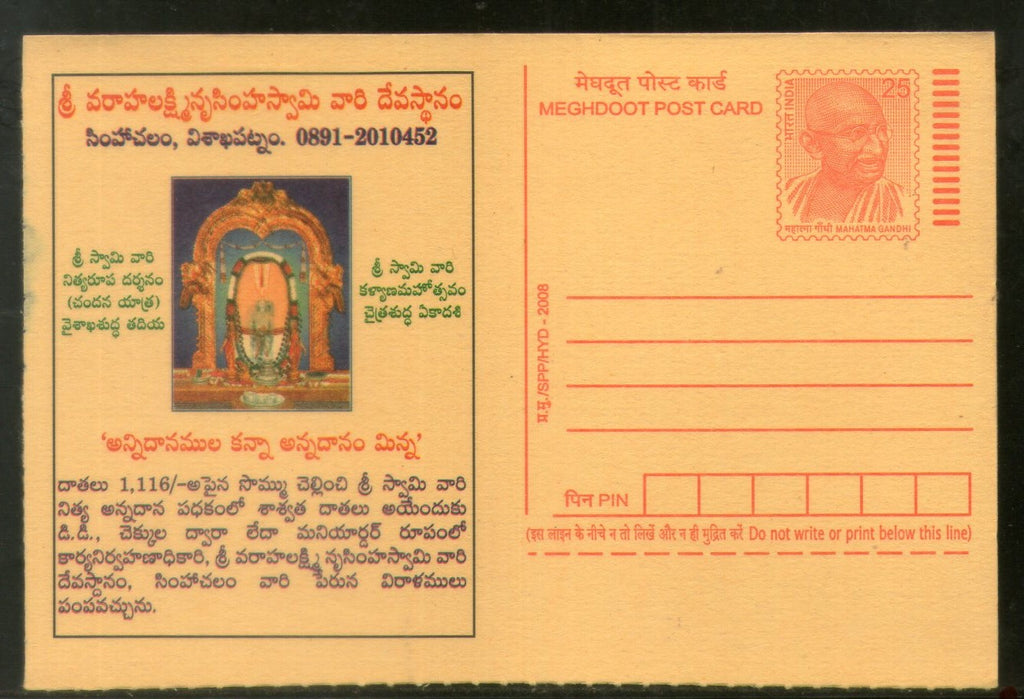 శ్రీ వరాహలక్ష్మీనృసింహస్వామి వారి దేవస్థానం
సింహాచలం, విశాఖపట్నం. 0891-2010452
శ్రీ స్వామి వారి
నిత్యరూప దర్శనం
(చందన యాత్ర)
వైశాఖశుద్ధ తదియ
శ్రీ స్వామి వారి
కళ్యాణమహోత్సవం
చైత్రశుద్ధ ఏకాదశి
'అన్నిదానముల కన్నా అన్నదానం మిన్న'
దాతలు 1,116/-అపైన సొమ్ము చెల్లించి శ్రీ స్వామి వారి
నిత్య అన్నదాన పధకంలో శాశ్వత దాతలు అయేందుకు
డి.డి., చెక్కుల ద్వారా లేదా మనియార్డర్ రూపంలో
కార్యనిర్వహణాధికారి, శ్రీ వరాహలక్ష్మి నృసింహస్వామి వారి
దేవస్ధానం, సింహాచలం వారి పేరున విరాళములు
పంపవచ్చును.
मेघदूत पोस्ट कार्ड
MEGHDOOT POST CARD
भारत INDIA
25
महात्मा गाँधी MAHATMA GANDHI
प्र.मु./SPP/HYD - 2008
पिन PIN
(इस लाइन के नीचे न तो लिखें और न ही मुद्रित करें Do not write or print below this line)